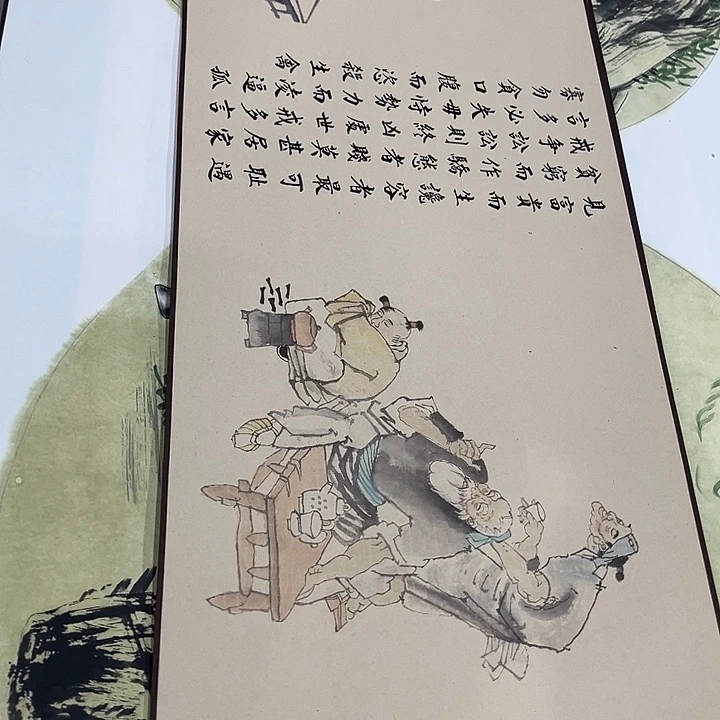 見富貴而生諂容者最可恥遇
貧窮而作驕態者賤莫甚居家
戒爭訟訟則終凶處世戒多言
言多必失毋恃勢力而凌逼孤
寡勿貪口腹而恣殺生禽